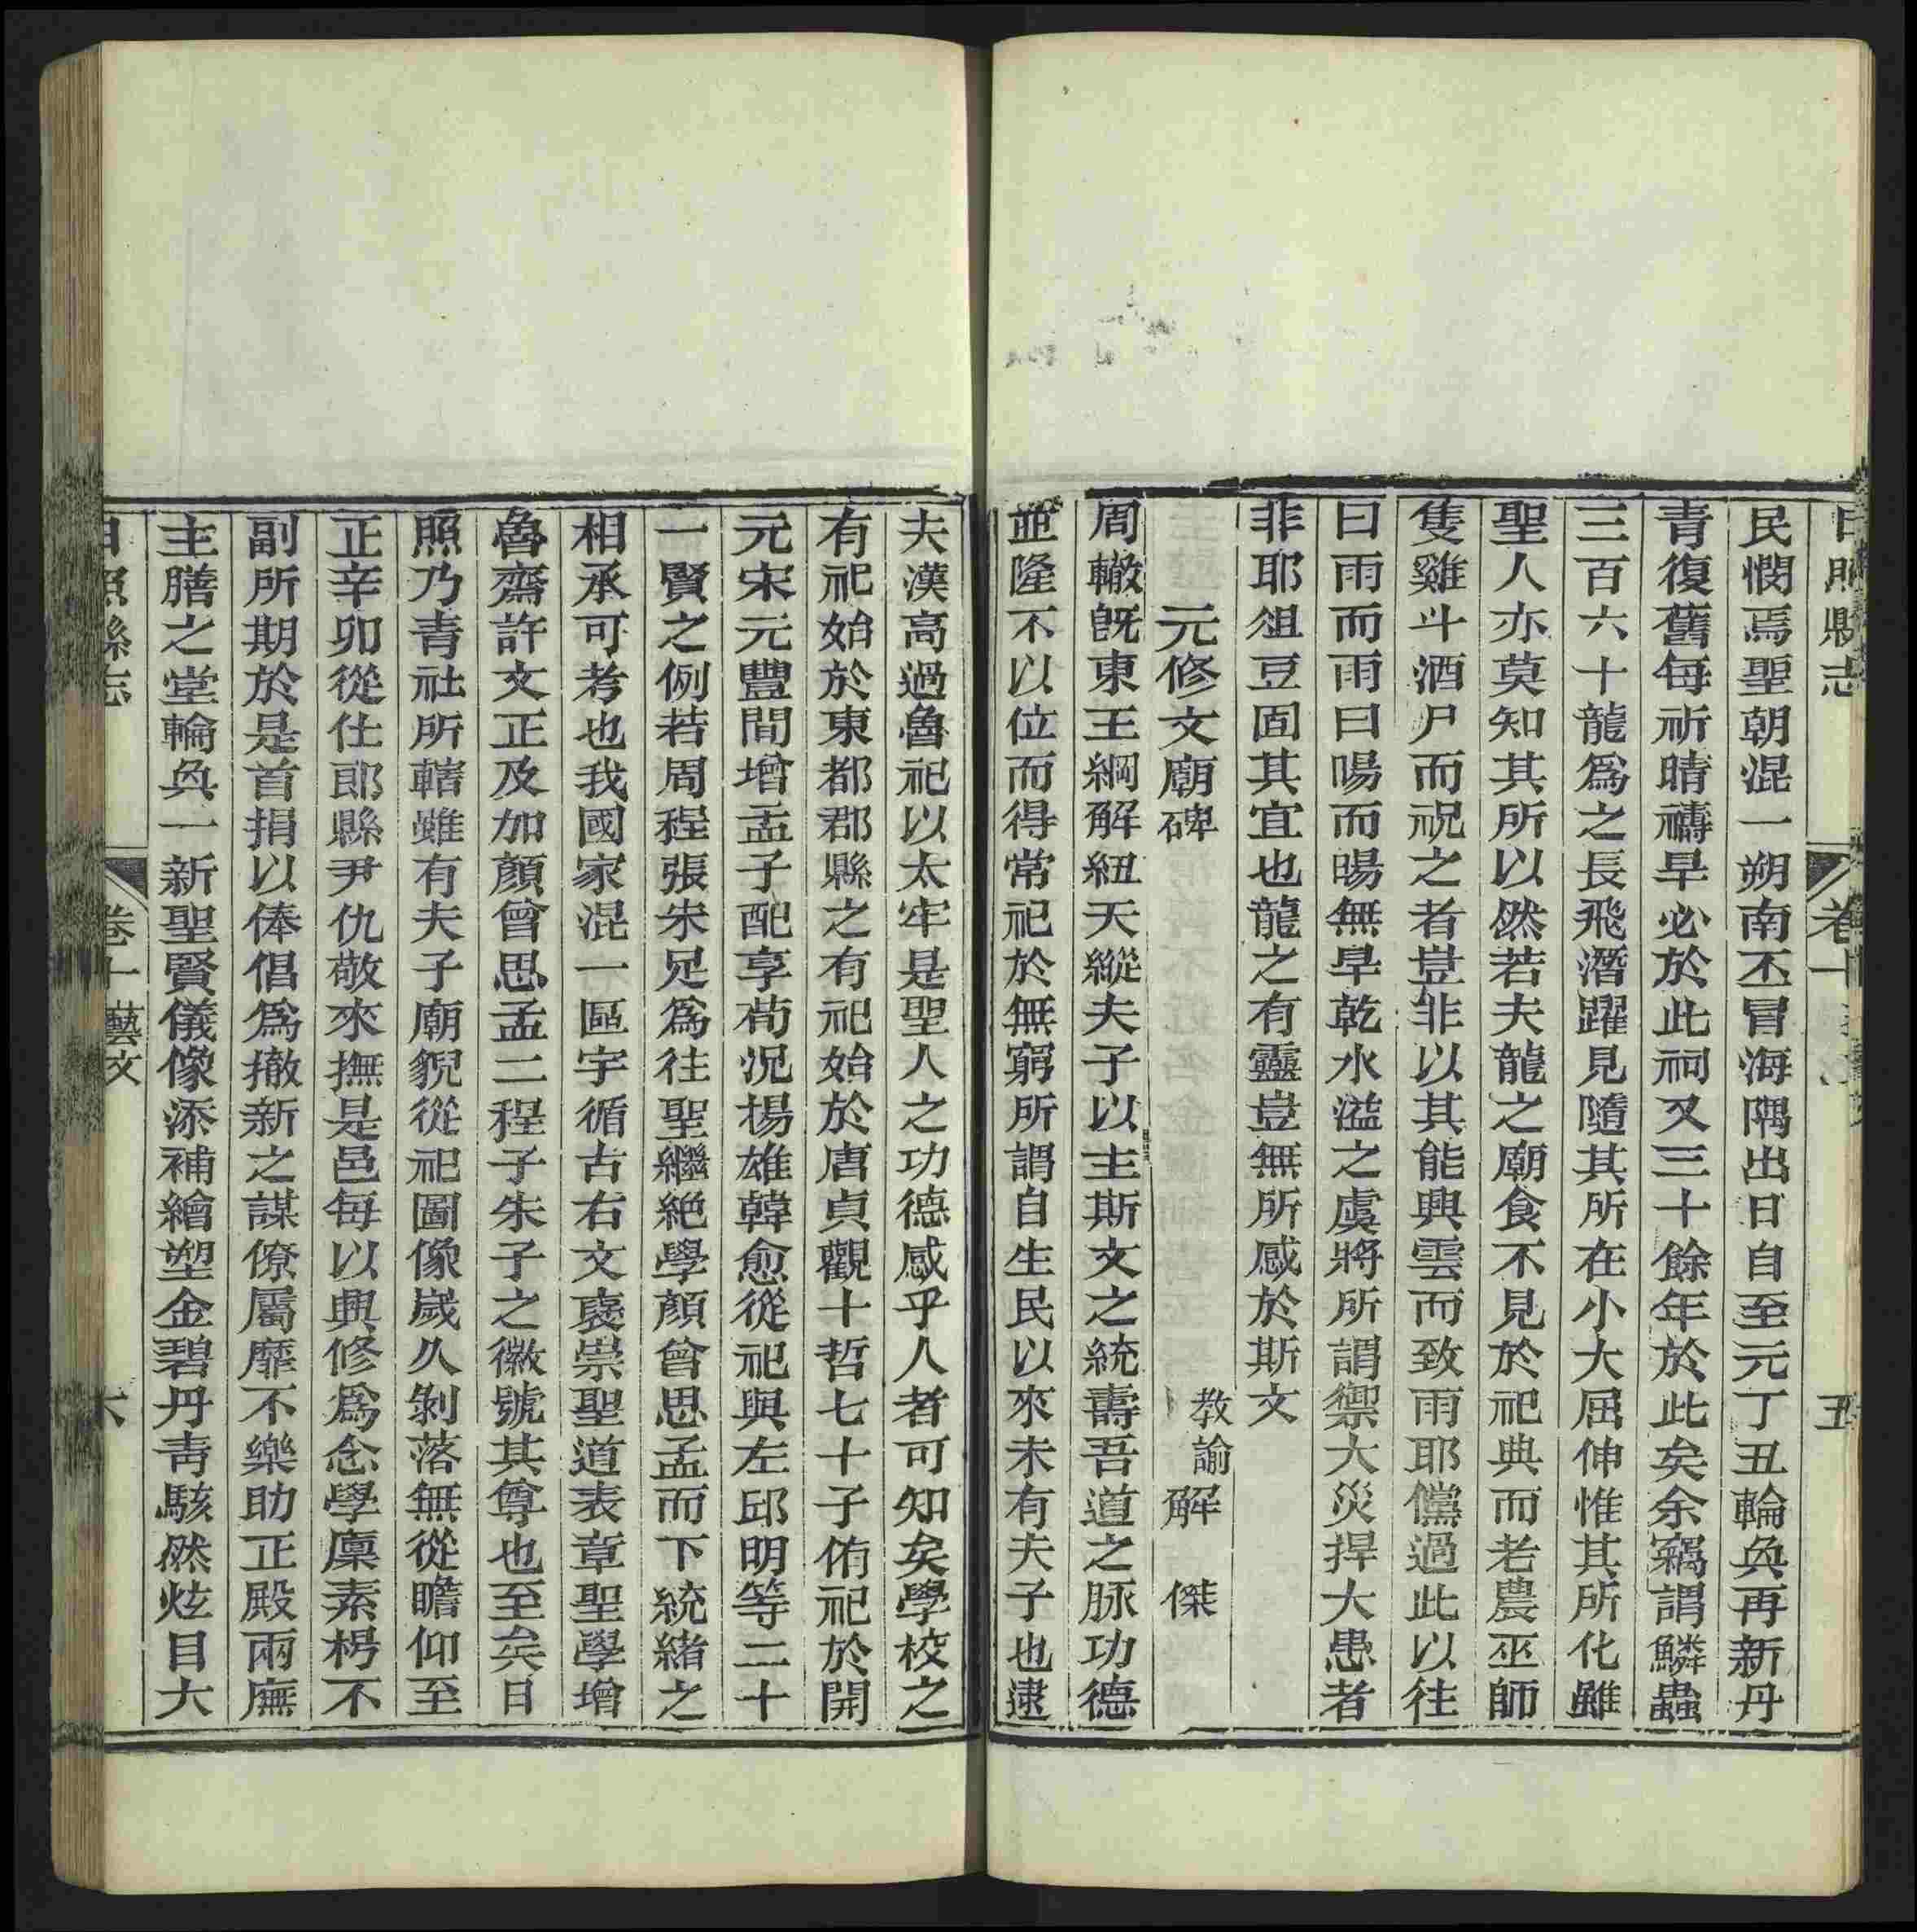 日照縣志 卷十 五
民憫焉聖朝混一朔南丕冒海隅出日自至元丁丑輪奐再新丹
青復舊每祈晴禱旱必於此祠又三十餘年於此矣余竊謂鱗蟲
三百六十龍爲之長飛潛躍見隨其所在小大屈伸惟其所化雖
聖人亦莫知其所以然若夫龍之廟食不見於祀典而老農巫師
隻雞斗酒尸而祝之者豈非以其能興雲而致雨耶儻過此以往
曰雨而雨曰暘而暘無旱乾水溢之虞將所謂禦大災捍大患者
非耶俎豆固其宜也龍之有靈豈無所感於斯文
元修文廟碑 教諭 解 傑
周轍旣東王綱解紐天縱夫子以主斯文之統壽吾道之脉功德
並隆不以位而得常祀於無窮所謂自生民以來未有夫子也逮
夫漢高過魯祀以太牢是聖人之功德感乎人者可知矣學校之
有祀始於東都郡縣之有祀始於唐貞觀十哲七十子侑祀於開
元宋元豐間增孟子配享荀況揚雄韓愈從祀與左邱明等二十
一賢之例若周程張朱足爲往聖繼絶學顏曾思孟而下統緒之
相承可考也我國家混一區宇循古右文褒崇聖道表章聖學增
魯齋許文正及加顏曾思孟二程子朱子之徽號其尊也至矣日
照乃青社所轄雖有夫子廟貌從祀圖像歲久剝落無從瞻仰至
正辛卯從仕郎縣尹仇敬來撫是邑每以興修爲念學廩素枵不
副所期於是首捐以俸倡爲撤新之謀僚屬靡不樂助正殿兩廡
主膳之堂輪奐一新聖賢儀像添補繪塑金碧丹靑駭然炫目大
日照縣志 卷十 藝文 六